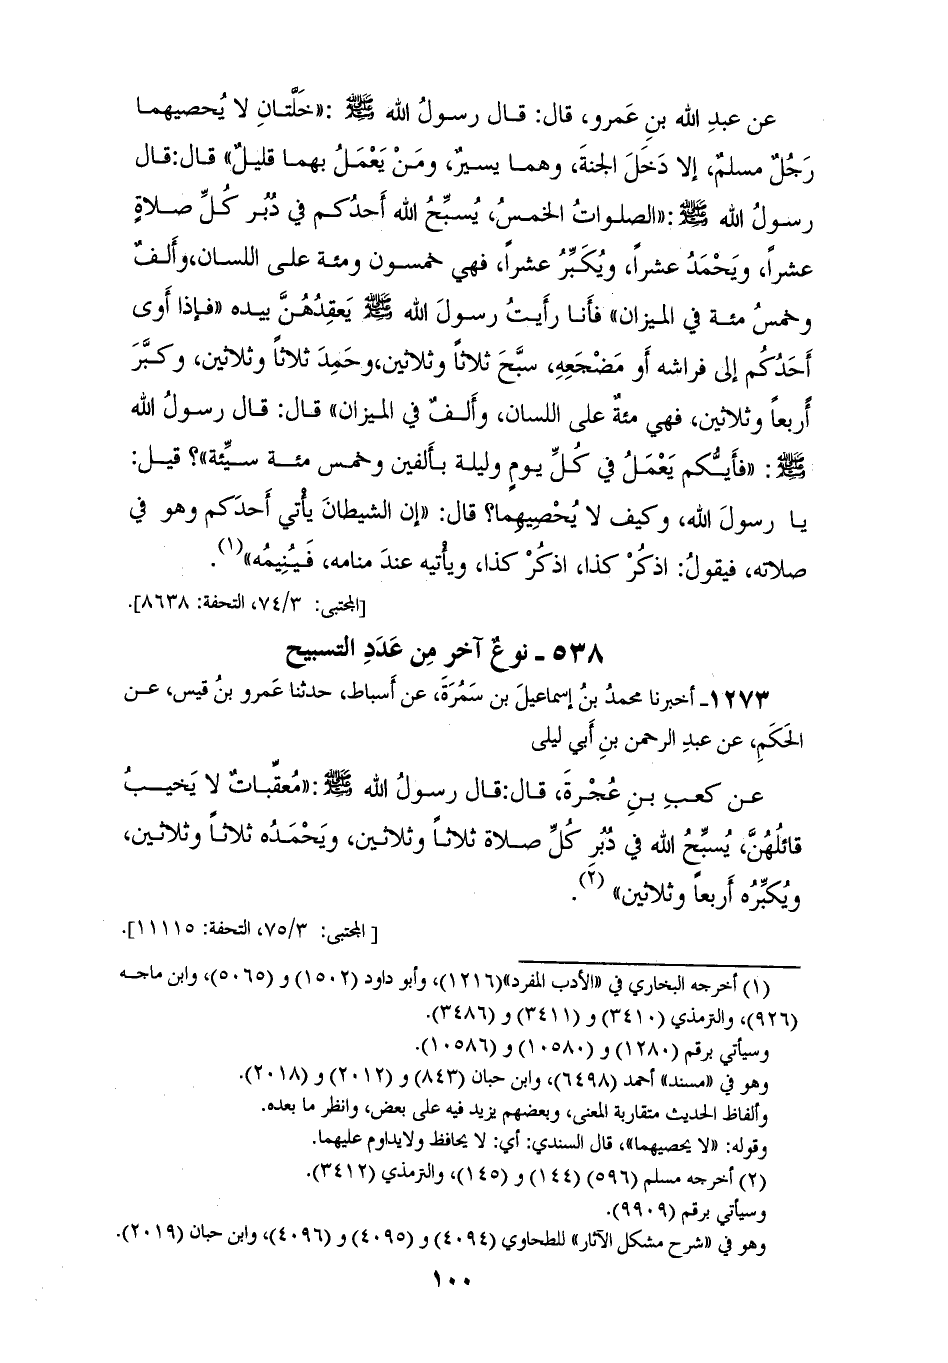 عن عبدِ الله بنِ عَمرو، قال: قال رسولُ الله ﷺ :«خَلَّتانِ لا يُحصيهما
رَجُلٌ مسلمٌ، إلا دَخَلَ الجنةَ، وهما يسيرٌ، ومَنْ يَعْمَلُ بهما قليلٌ» قال:قال
رسولُ الله ﷺ:«الصلواتُ الخمسُ، يُسبِّحُ الله أحدُكم في دُبُر كُلِّ صلاةٍ
عشراً، ويَحْمَدُ عشراً، ويُكَبِّرُ عشراً، فهي خمسون ومئة على اللسان،وألفٌ
وخمسُ مئة في الميزان» فأنا رأيتُ رسولَ الله ﷺ يَعقِدُهُنَّ بيده «فإذا أوى
أحَدُكُم إلى فراشه أو مَضْجَعِهِ، سبَّحَ ثلاثاً وثلاثين،وحَمِدَ ثلاثاً وثلاثين، وكبَّرَ
أربعاً وثلاثين، فهي مئةٌ على اللسان، وألفٌ في الميزان» قال: قال رسولُ الله
ﷺ: «فأيُّكم يَعْمَلُ في كُلِّ يومٍ وليلة بألفين وخمس مئة سيِّئة»؟ قيل:
يا رسولَ الله، وكيف لا يُحْصِيهِما؟ قال: «إن الشيطانَ يأتي أحدَكم وهو في
صلاته، فيقولُ: اذكُرْ كذا، اذكُرْ كذا، ويأتيه عندَ منامه، فَيُنِيمُه»(١).
[المجتبى: ٧٤/٣، التحفة: ٨٦٣٨].
٥٣٨ ـ نوعٌ آخر مِن عَدَدِ التسبيح
١٢٧٣ـ أخبرنا محمدُ بنُ إسماعيلَ بن سَمُرَةَ، عن أسباط، حدثنا عَمرو بنُ قيس، عن
الحَكَمِ، عن عبدِ الرحمن بنِ أبي ليلى
عن كعبِ بنِ عُجْرةَ، قال:قال رسولُ الله ﷺ:«مُعقِّباتٌ لا يَخيبُ
قائلُهُنَّ، يُسبِّحُ الله في دُبُرِ كُلِّ صلاة ثلاثاً وثلاثين، ويَحْمَدُه ثلاثاً وثلاثين،
ويُكبِّرُه أربعاً وثلاثين» (٢).
[ المجتبى: ٧٥/٣، التحفة: ١١١١٥].
(١) أخرجه البخاري في «الأدب المفرد»(١٢١٦)، وأبو داود (١٥٠٢) و (٥٠٦٥)، وابن ماجه
(٩٢٦)، والترمذي (٣٤١٠) و (٣٤١١) و (٣٤٨٦).
وسيأتي برقم (١٢٨٠) و (١٠٥٨٠) و (١٠٥٨٦).
وهو في «مسند» أحمد (٦٤٩٨)، وابن حبان (٨٤٣) و (٢٠١٢) و (٢٠١٨).
وألفاظ الحديث متقاربة المعنى، وبعضهم يزيد فيه على بعض، وانظر ما بعده.
وقوله: «لا يحصيهما»، قال السندي: أي: لا يحافظ ولايداوم عليهما.
(٢) أخرجه مسلم (٥٩٦) (١٤٤) و (١٤٥)، والترمذي (٣٤١٢).
وسيأتي برقم (٩٩٠٩).
وهو في «شرح مشكل الآثار» للطحاوي (٤٠٩٤) و (٤٠٩٥) و (٤٠٩٦)، وابن حبان (٢٠١٩).
١٠٠